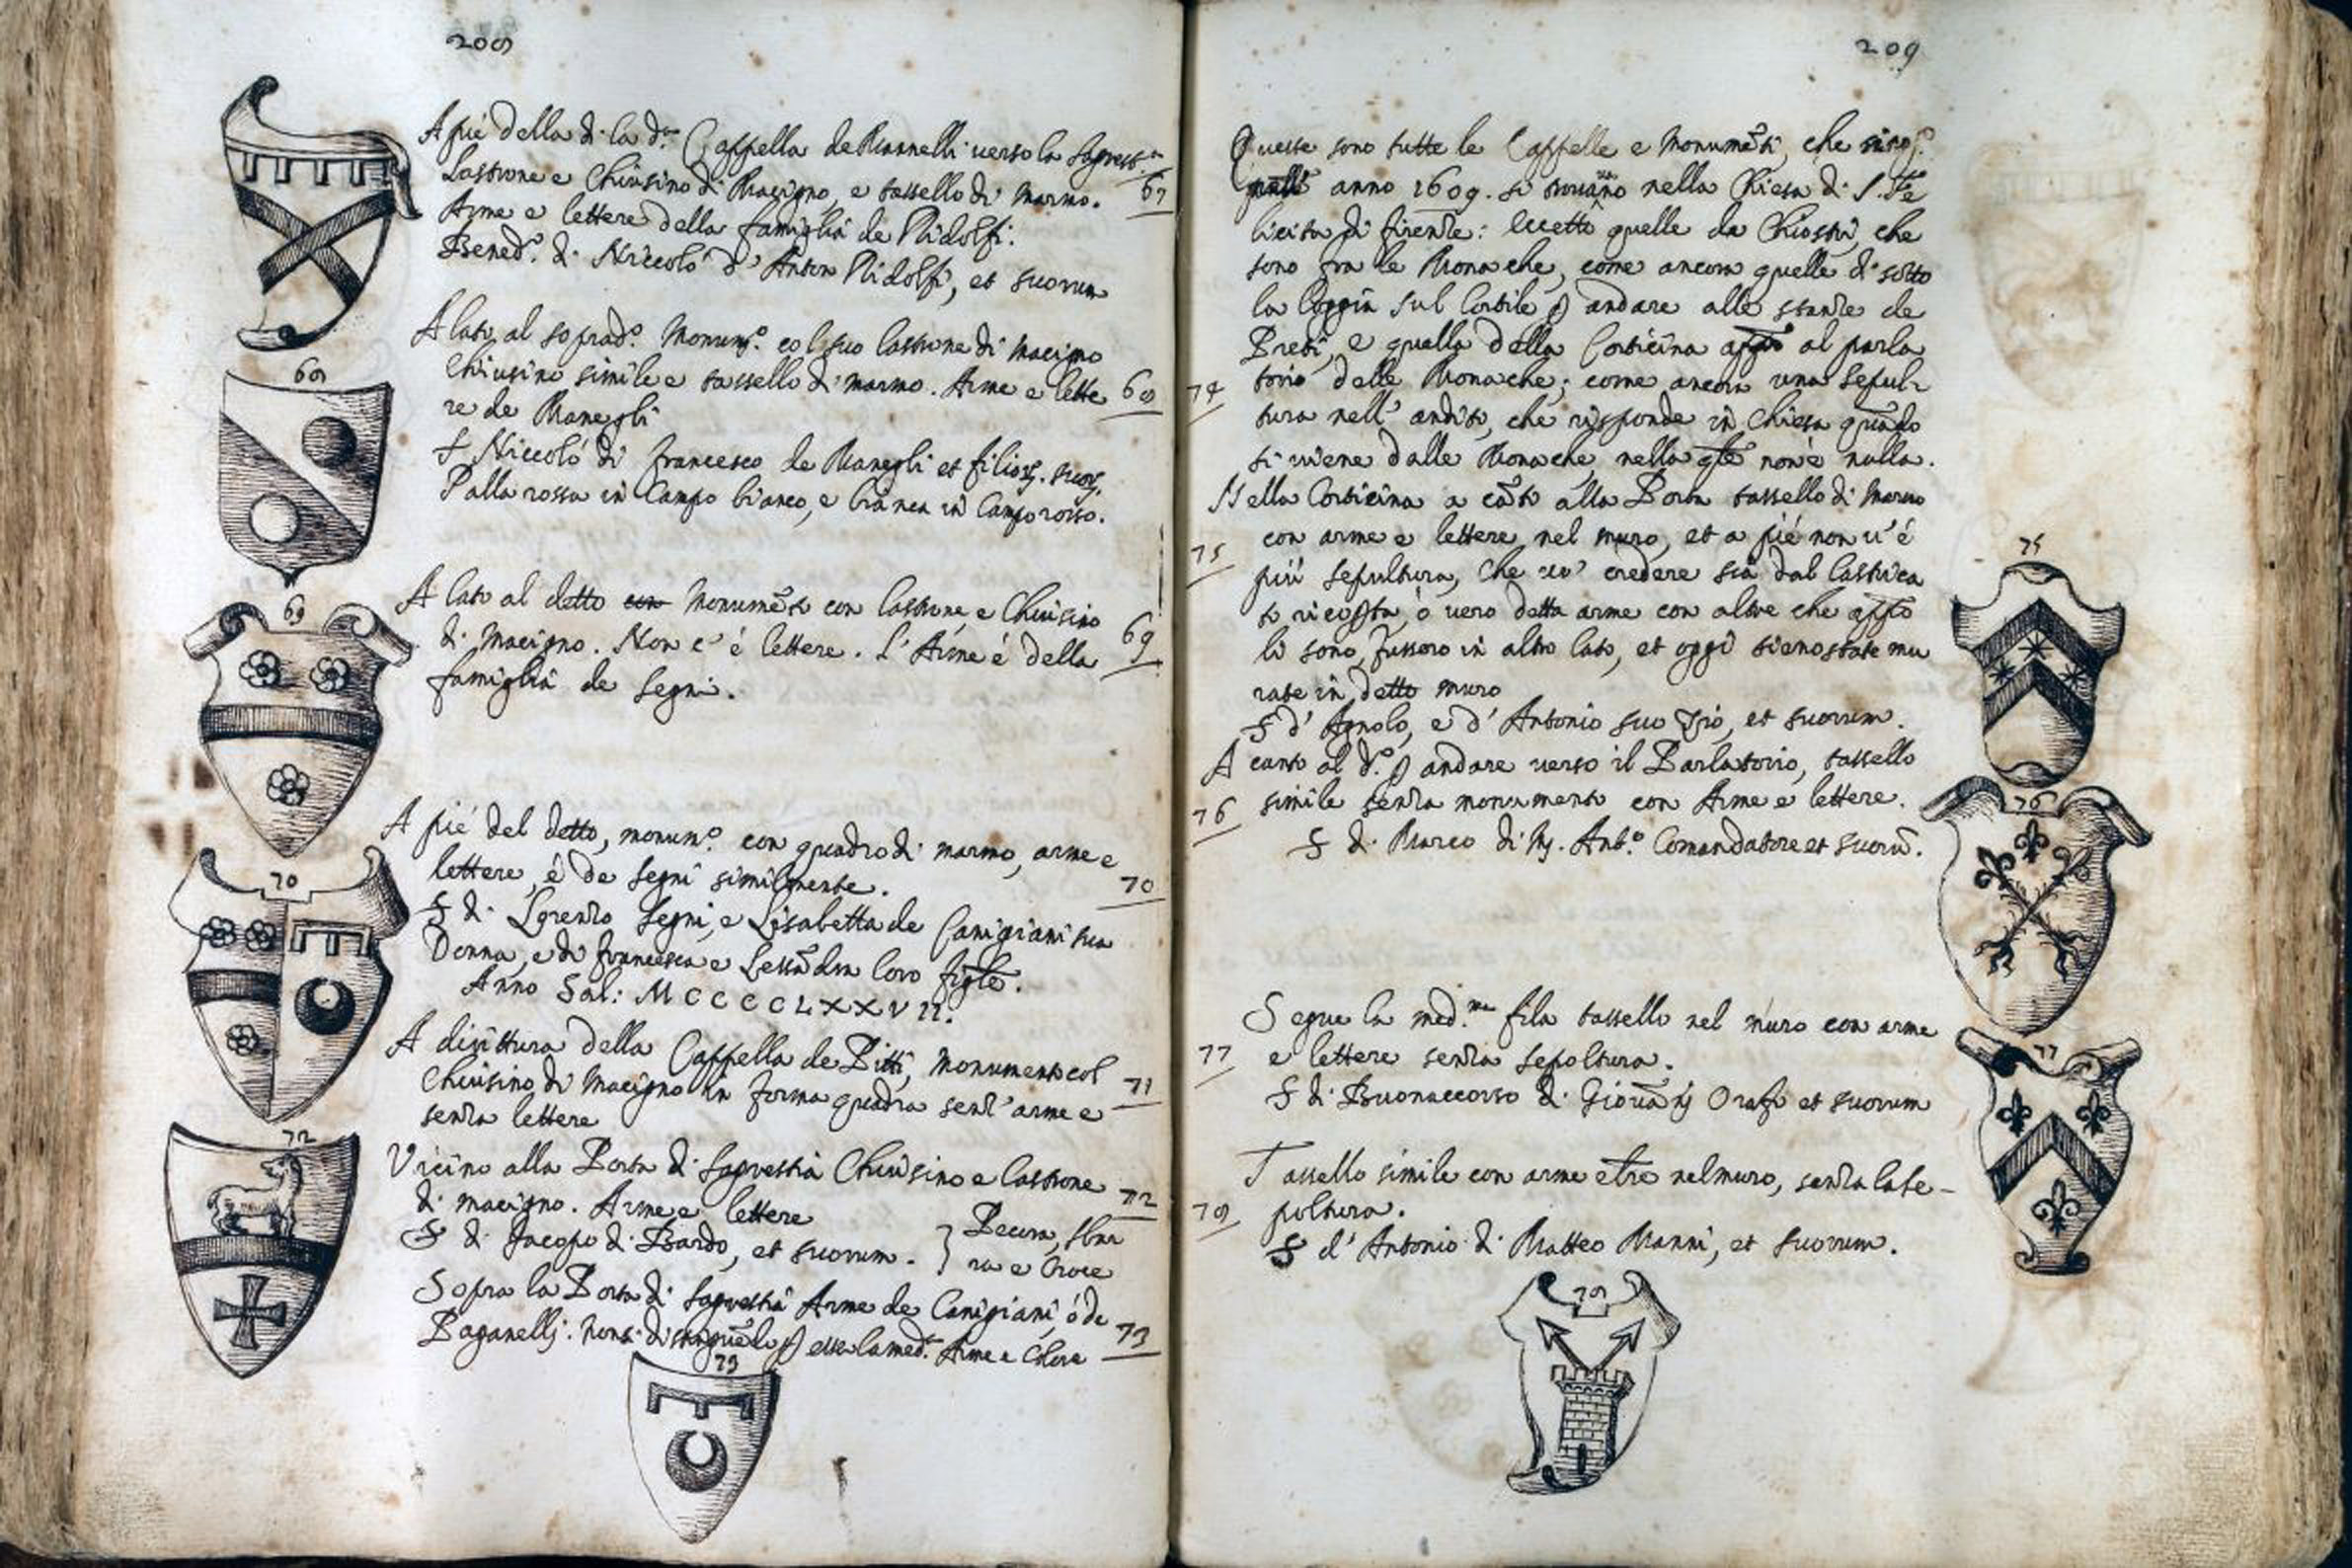 208
A pié della di la d.ª Cappella de Mannelli verso la Sagrest.ª
Lastrone e Chiusino di Macigno, e tassello di marmo.
67
Arme e lettere della famiglia de Ridolfi.
Bened.º di Niccolo d'Anton Ridolfi, et suorum
A lato al soprad.º Monum.º col suo lastrone di macigno
Chiusino simile e tassello di marmo. Arme e lette
68
re de Manegli
S Niccoló di francesco de Manegli et filior. suor.
Palla rossa in Campo bianco, e bianca in Campo rosso.
68
A lato al detto Monumēto con lastrone, e Chiusino
di Macigno. Non c'é lettere. L'Arme é della
69
famiglia de Segni.
69
A pié del detto, monum.º con quadro di marmo, arme e
lettere, é de Segni similmente.
70
S di Lorenzo Segni, e Lisabetta de Canigiani sua
Donna, e di francesca e Lessādra loro figle.
Anno Sal: MCCCCLXXVII.
70
A dirittura della Cappella de Pitti, Monumento col
Chiusino di Macigno in forma quadra senz'arme e
71
senza lettere
Vicino alla Porta di Sagrestia Chiusino e lastrone
di macigno. Arme e lettere
72
S di Jacopo di Bardo, et suorum. } Pecora, sbar
ra e Croce
72
Sopra la Porta di Sagrestia Arme de Canigiani, ó de
Paganelli. esse la med. Arme e colore
73
73
209
Queste sono tutte le Cappelle e Monumēti, che
anno 1609. si trovano nella Chiesa di S. Fe
licita di firenze: eccetto quelle da Chiostri, che
sono fra le Monache, come ancora quelle di sotto
la loggia sul Cortile p andare alle stanze de
Preti, e quella della Corticina al parla
74
torio delle Monache; come ancora una sepul-
tura nell'andito, che risponde in Chiesa quādo
si viene dalle Monache, nella qle non é nulla.
Nella Corticina a cāto alla Porta tassello di Marmo
con arme e lettere nel muro, et a pié non v'é
75
piú sepultura, che vo' credere sia dal lastrica
to ricopta, ó vero detta arme con altre che
li sono, fussoro in altro lato, et oggi sieno state mu
rate in detto muro
S d'Agnolo, e d'Antonio suo Zio, et suorum.
75
A canto al d.º p andare verso il Parlatorio, tassello
76
simile senza monumento con Arme e lettere.
S di Marco di Ant.º Comandatore et suorū.
76
Segue la med.ma fila tassello nel muro con arme
77
e lettere senza sepoltura.
S di Buonaccorso di Giovāni Orafo et suorum
77
Tassello simile con arme e lre nel muro, senza la se-
78
poltura.
S d'Antonio di Matteo Manni, et suorum.
78